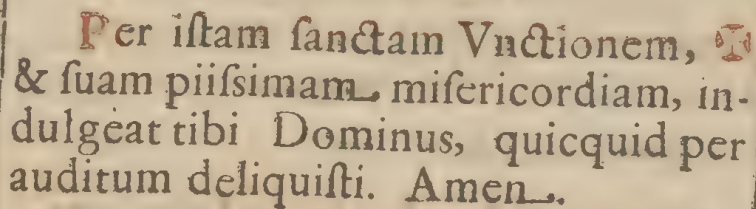 Per iſtam ſanctam Vnctionem, ✠
& ſuam piiſsimam miſericordiam, in-
dulgeat tibi Dominus, quicquid per
auditum deliquiſti. Amen.